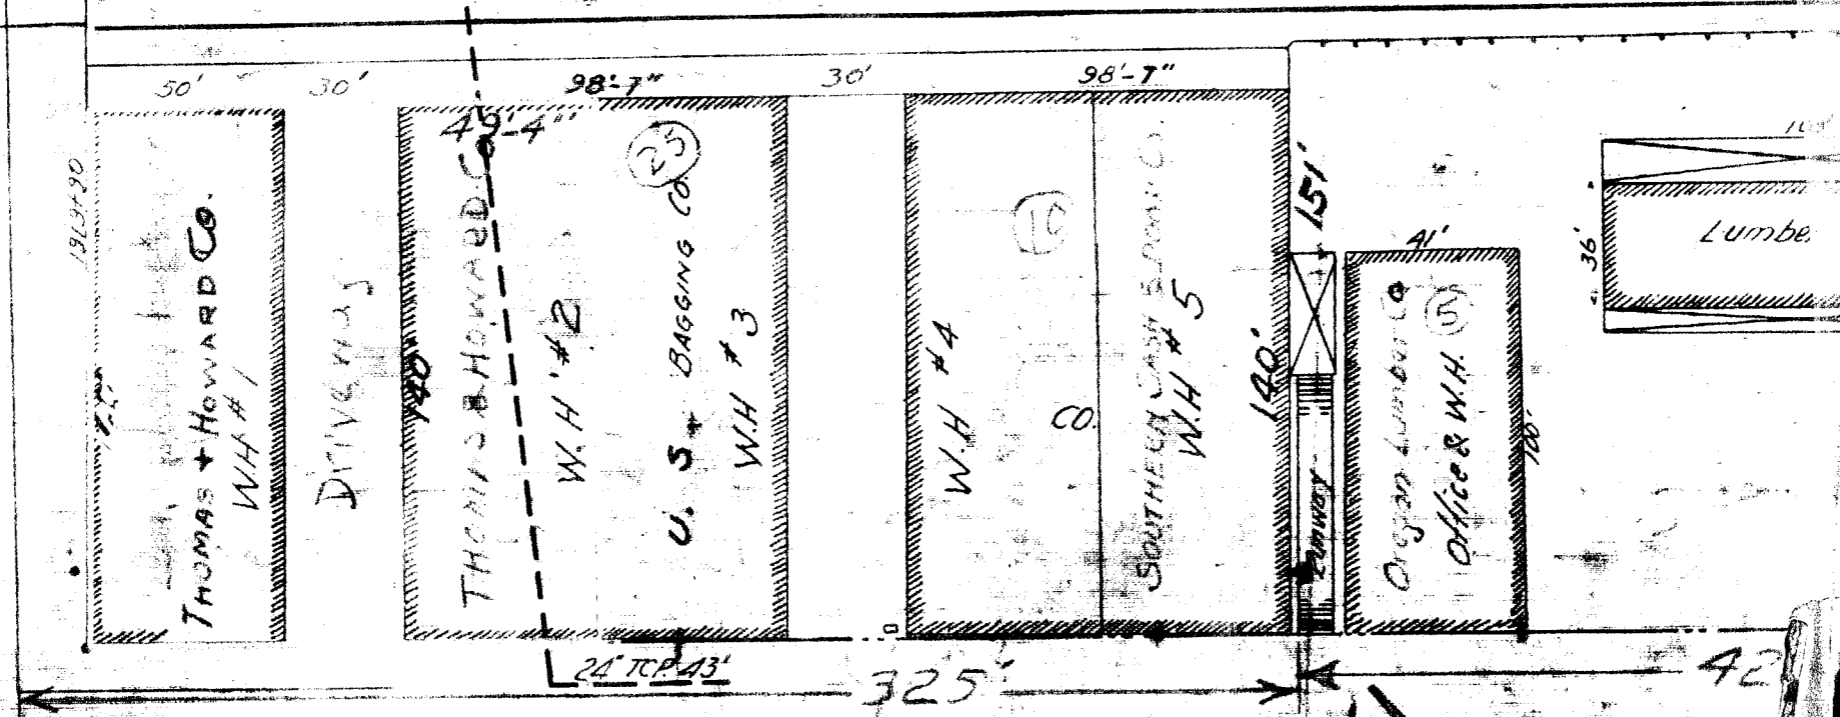 50'
30'
98'-7"
30'
98'-7"
49'-4"
THOMAS + HOWARD Co.
WH # 1
Driveway
140'
THOMAS & HOWARD Co.
W.H # 2
25
U. S. BAGGING Co.
W.H # 3
W.H # 4
10
CO.
SOUTHERN
W.H # 5
140'
151'
Runway
41'
Oregon Lumber Co
5
Office & W.H.
100'
36'
Lumber
24" TCP. 43'
325'
42